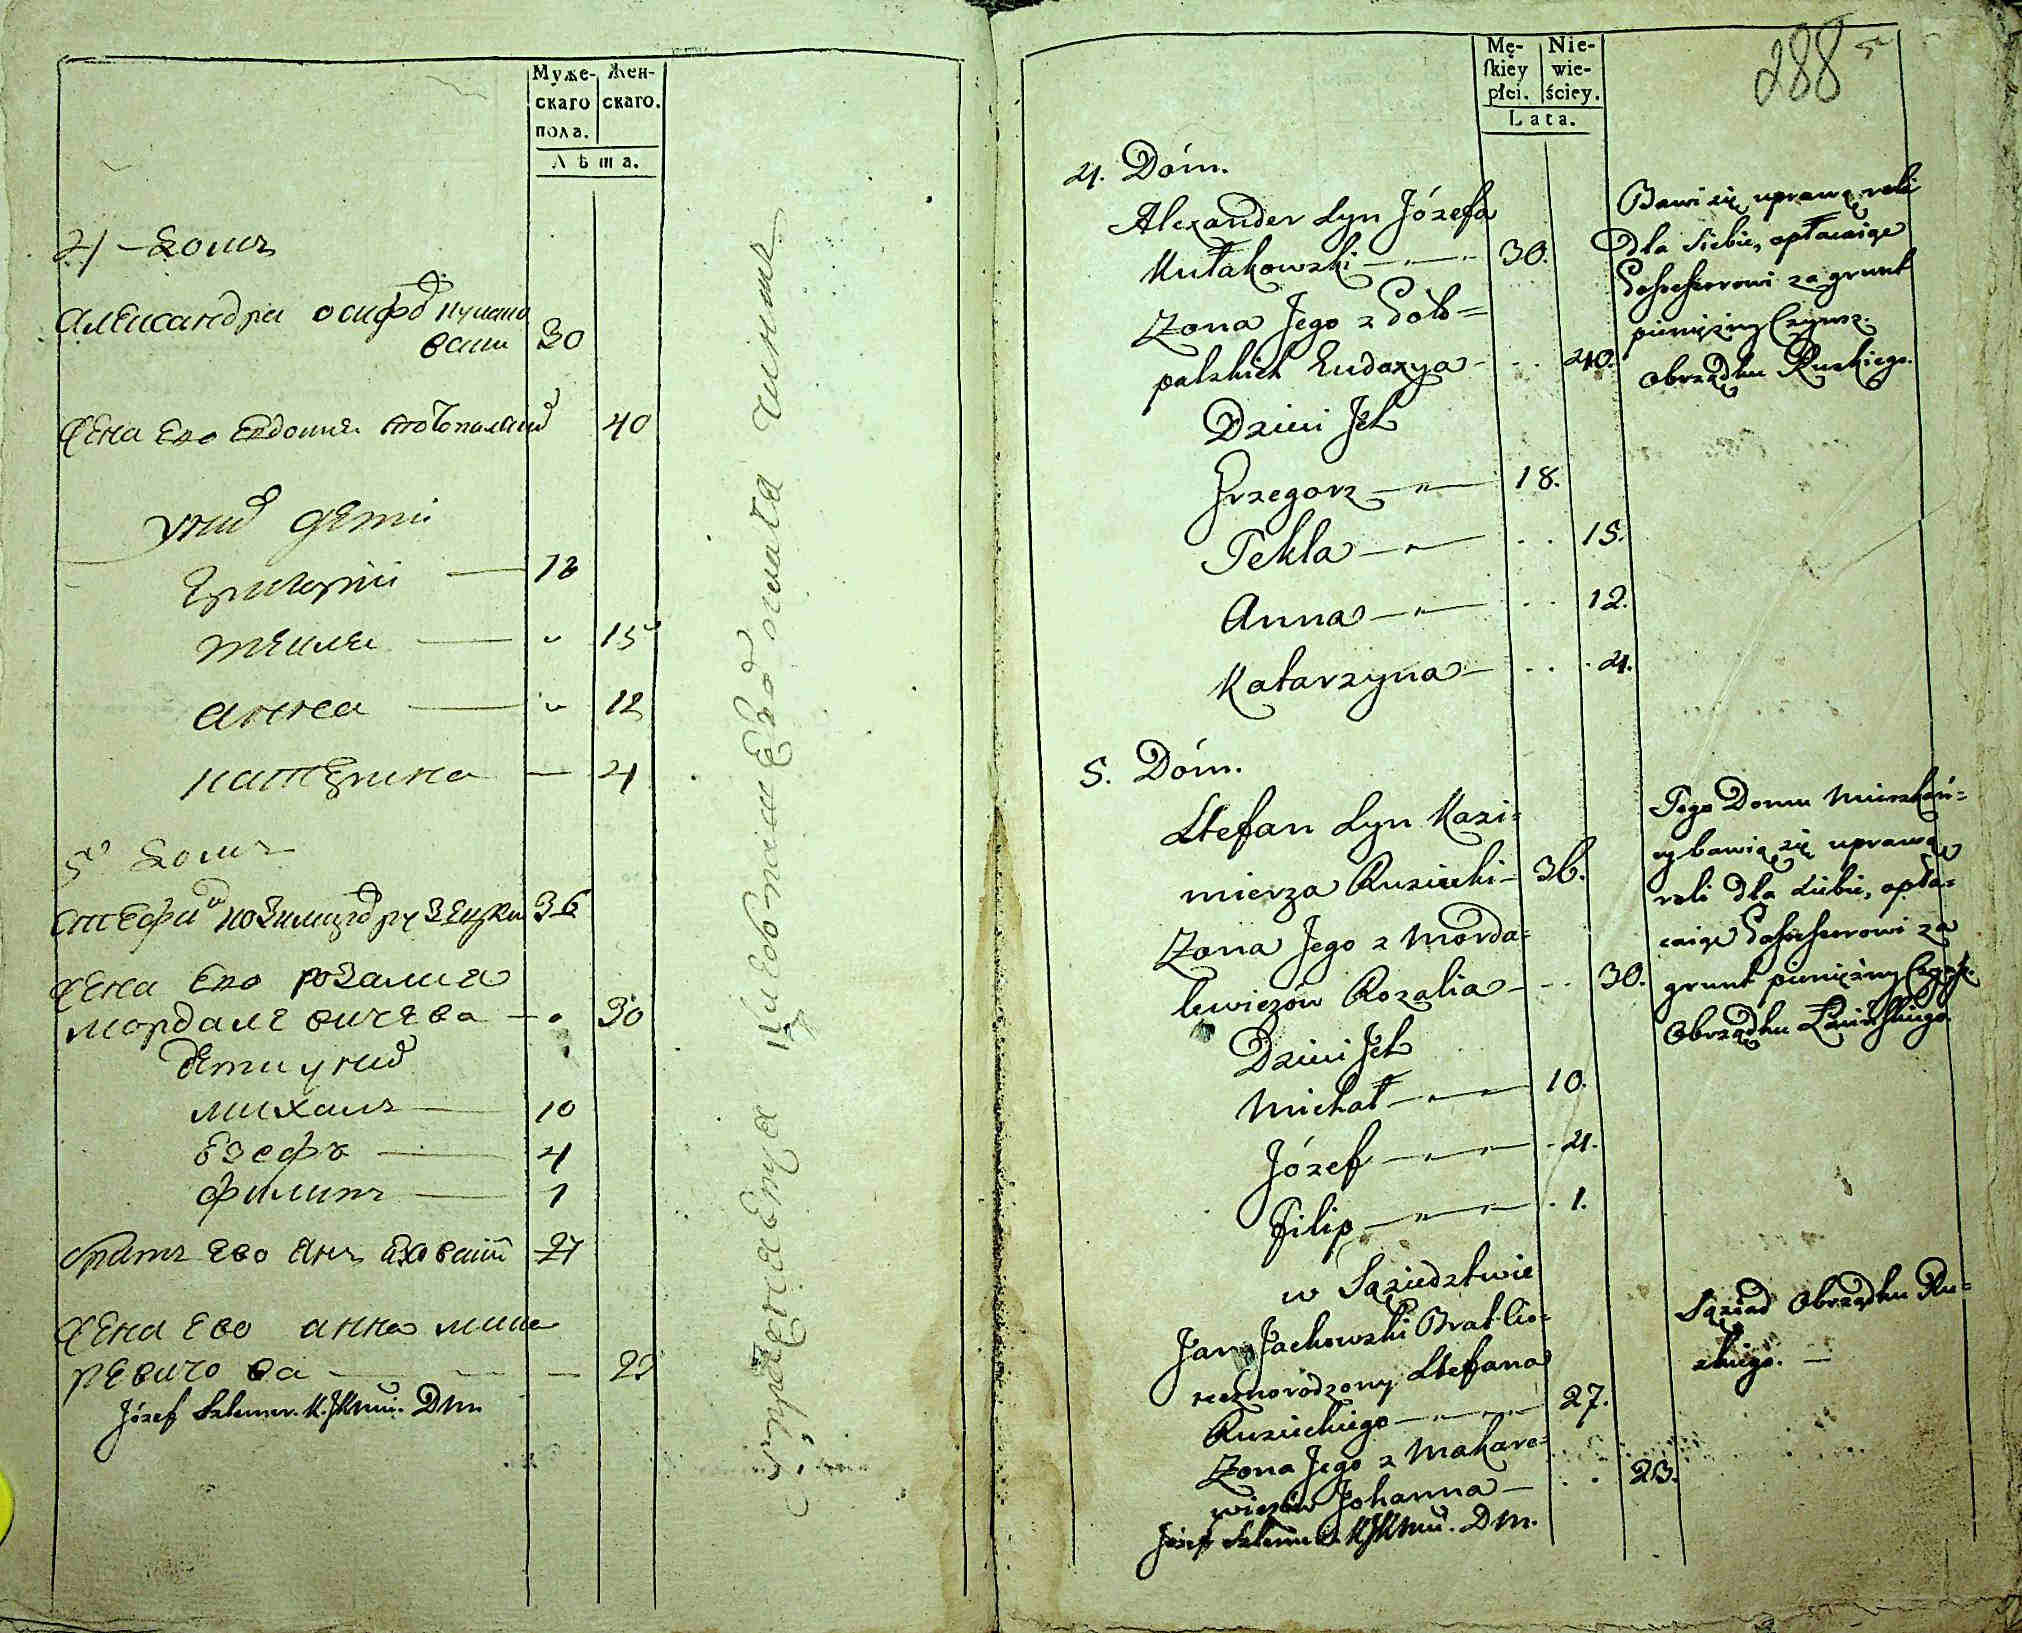 Муже-
скаго
пола.
Жен-
скаго.
Лѣта.
4 домъ
Александръ осифов кулако
вски 30
Жена Его Евдокия столпольских 40
у них дети
Григорий — 18
текля — " 15
анна — " 12
катерина — 4
5 домъ
стефан казимиров рузецки 36
Жена Его розалия
мордалевичева — " 30
дети у них
михаилъ — 10
езефъ — 4
филипъ — 1
братъ его янъ яховский 27
Жена его анна мака
ревичова — 23
Józef Szlemer. K. JKmci. Dm.
Упражняется хлебопашеством платя чиншъ
288
5
Mę-
skiey
płci.
Nie-
wie-
ściey.
Lata.
4. Dóm.
Alexander Syn Józefa
Kułakowski — " — 30.
Zona Jego z Dołb=
palskich Eudoxya - . . 40.
Dzieci Jch
Grzegorz — " — 18.
Tekla — " — . . 15.
Anna — " — . . 12.
Katarzyna — . . . 4.
Bawi się uprawą roli
dla siebie, opłacaiąc
Possessorowi za grunt
pieniężny Czynsz.
Obrządku Ruskiego.
5. Dóm.
Stefan Syn Kazi=
mierza Ruziecki — 36.
Zona Jego z Morda=
lewiczów Rozalia — . . 30.
Dzieci Jch
Michał — " — 10.
Józef — " — . 4.
Filip — " — . 1.
w Sąsiedztwie
Jan Jachowski Brat Cio=
tecznorodzony Stefana
Ruzieckiego — " — 27.
Zona Jego z Makare=
wiczów Johanna — . . 23.
Józef Szlemer. K. JKmci. Dm.
Tego Domu Mieszkań=
cy bawią się uprawą
roli dla siebie, opła=
caiąc Possessorowi za
grunt pieniężny Czynsz.
Obrządku Łacińskiego.
Sąsiad Obrządku Ru=
skiego. —